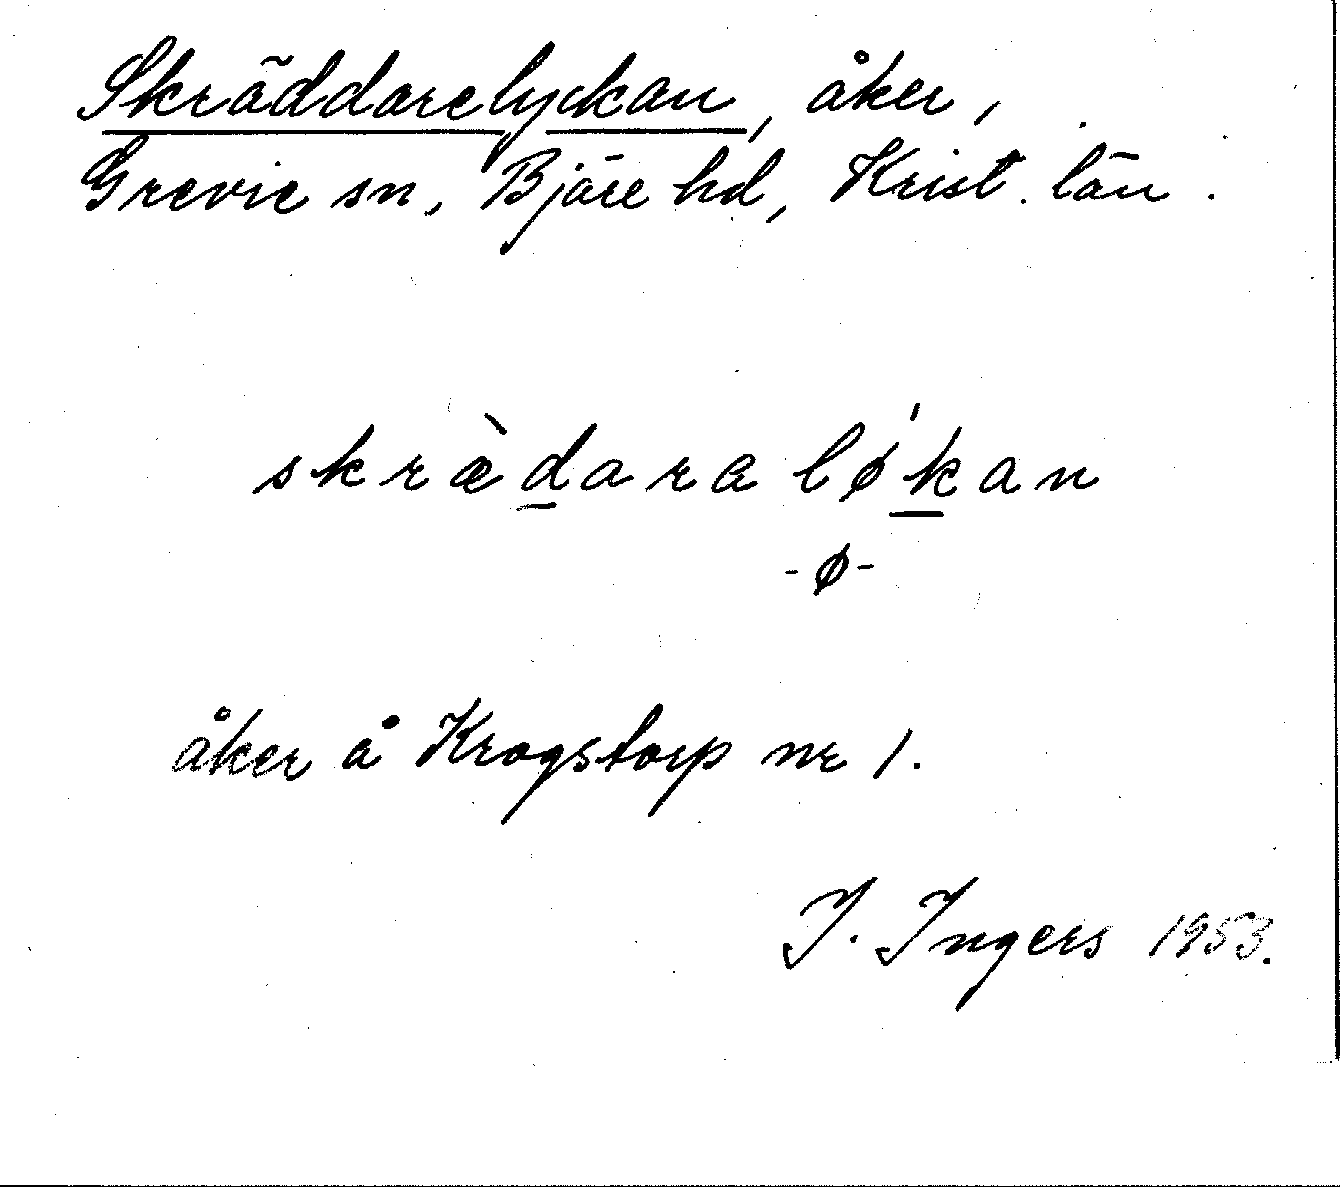 Skräddarelyckan, åker,
Grevie sn, Bjäre hd, Krist. län.
skræ̀d̲aralǿk̲an
-ø-
åker å Krogstorp nr 1.
I. Ingers 1953.